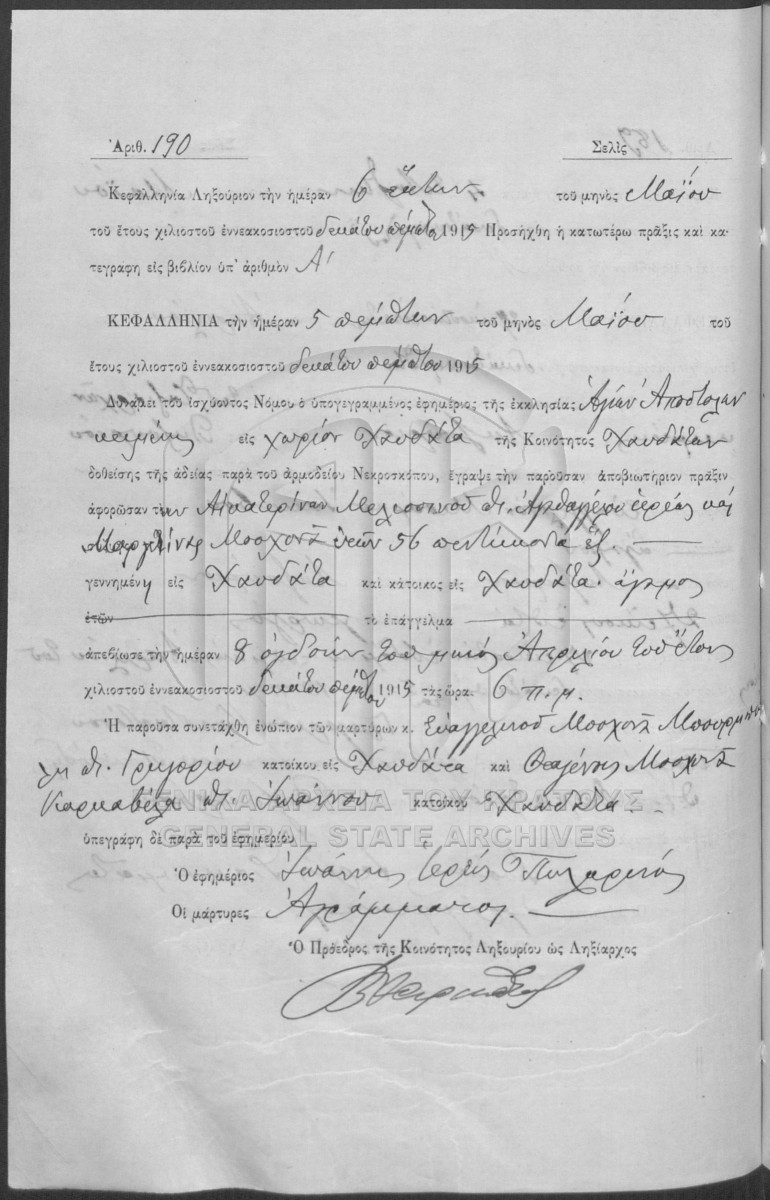 Ἀριθ. 190 Σελὶς
Κεφαλληνία Ληξούριον τὴν ἡμέραν 6 ἕκτην τοῦ μηνὸς Μαΐου
τοῦ ἔτους χιλιοστοῦ ἐννεακοσιοστοῦ δεκάτου πέμπτου 1915 Προσήχθη ἡ κατωτέρω πρᾶξις καὶ κα-
τεγράφη εἰς βιβλίον ὑπ' ἀριθμὸν Α'
ΚΕΦΑΛΛΗΝΙΑ τὴν ἡμέραν 5 πέμπτην τοῦ μηνὸς Μαΐου τοῦ
ἔτους χιλιοστοῦ ἐννεακοσιοστοῦ δεκάτου πέμπτου 1915
Δυνάμει τοῦ ἰσχύοντος Νόμου ὁ ὑπογεγραμμένος ἐφημέριος τῆς ἐκκλησίας Ἁγίων Ἀποστόλων
κειμένης εἰς χωρίον Χαυδάτα τῆς Κοινότητος Χαυδάτων
δοθείσης τῆς ἀδείας παρὰ τοῦ ἁρμοδείου Νεκροσκόπου, ἔγραψε τὴν παροῦσαν ἀποβιωτήριον πρᾶξιν
ἀφορῶσαν τὴν Αἰκατερίναν Μελισσινοῦ ἱερέως καὶ
Μοσχονᾶ ἐτῶν 56 πεντήκοντα ἕξ
γεννημένη εἰς Χαυδάτα καὶ κάτοικος εἰς Χαυδάτα. ἄγαμος
ἐτῶν τὸ ἐπάγγελμα
ἀπεβίωσε τὴν ἡμέραν 8 ὀγδόην τοῦ μηνὸς Ἀπριλίου τοῦ ἔτους
χιλιοστοῦ ἐννεακοσιοστοῦ δεκάτου πέμπτου 1915 τὰς ὥρα. 6 π.μ.
Ἡ παροῦσα συνετάχθη ἐνώπιον τῶν μαρτύρων κ. Εὐαγγελινοῦ Μοσχονᾶ
Γρηγορίου κατοίκου εἰς Χαυδάτα καὶ Θεαγένης Μοσχονᾶ
Ἰωάννου κατοίκου Χαυδάτα
ΓΕΝΙΚΑ ΑΡΧΕΙΑ ΤΟΥ ΚΡΑΤΟΥΣ
GENERAL STATE ARCHIVES
ὑπεγράφη δὲ παρὰ τοῦ ἐφημερίου
Ὁ ἐφημέριος Ἰωάννης Ἱερεὺς
Οἱ μάρτυρες Ἀγράμματοι.
Ὁ Πρόεδρος τῆς Κοινότητος Ληξουρίου ὡς Ληξίαρχος